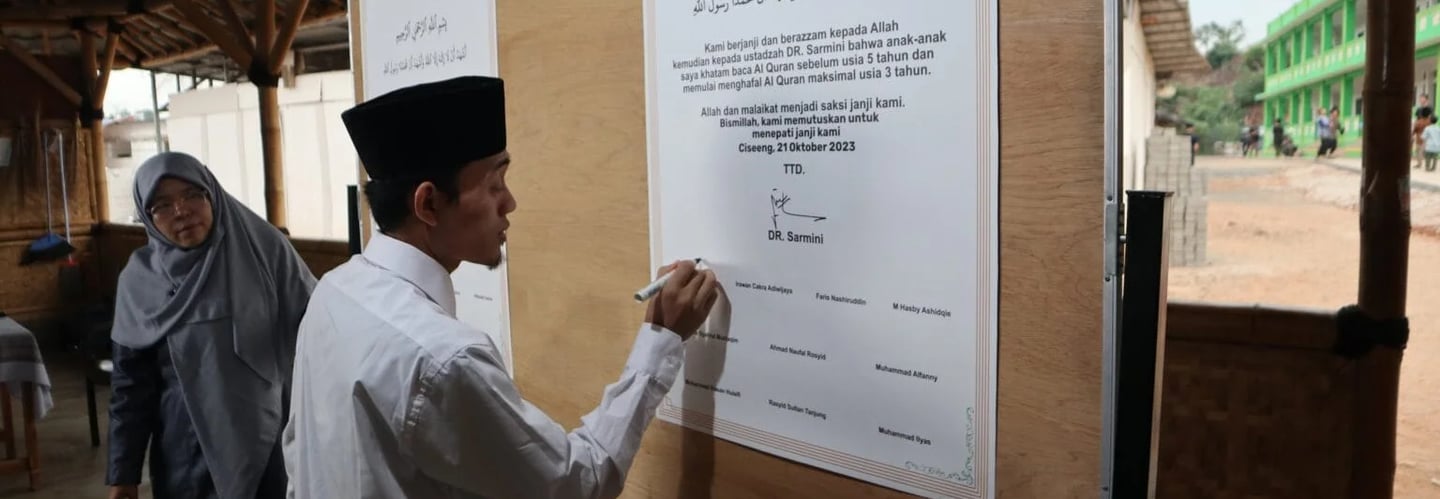 بسم الله الرحمن الرحيم
محمدا رسول الله
Kami berjanji dan berazzam kepada Allah
kemudian kepada ustadzah DR. Sarmini bahwa anak-anak
saya khatam baca Al Quran sebelum usia 5 tahun dan
memulai menghafal Al Quran maksimal usia 3 tahun.
Allah dan malaikat menjadi saksi janji kami.
Bismillah, kami memutuskan untuk
menepati janji kami
Ciseeng, 21 Oktober 2023
TTD.
DR. Sarmini
Irawan Cakra Adiwijaya
Faris Nashiruddin
M Hasby Ashidqie
Ahmad Naufal Rosyid
Muhammad Alfanny
Rasyid Sultan Tanjung
Muhammad Ilyas